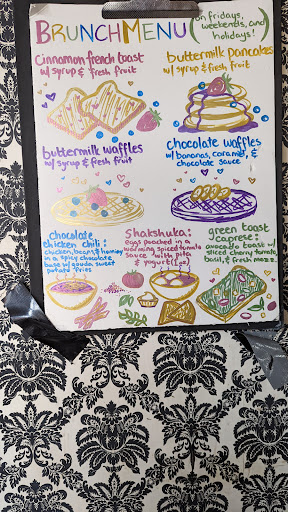 BRUNCH MENU
(on fridays,
weekends, and
holidays!)
cinnamon french toast
w/ syrup & fresh fruit
buttermilk pancakes
w/ syrup & fresh fruit
buttermilk waffles
w/ syrup & fresh fruit
chocolate waffles
w/ bananas, caramel, &
chocolate sauce
chocolate
chicken chili:
chicken, bacon, & hominy
in a spicy chocolate
base w/ gouda, sweet
potato fries
Shakshuka:
eggs poached in a
warming spiced tomato
sauce with pita
& yogurt
green toast
caprese:
avocado toast w/
sliced cherry tomato,
basil, & fresh mozz.